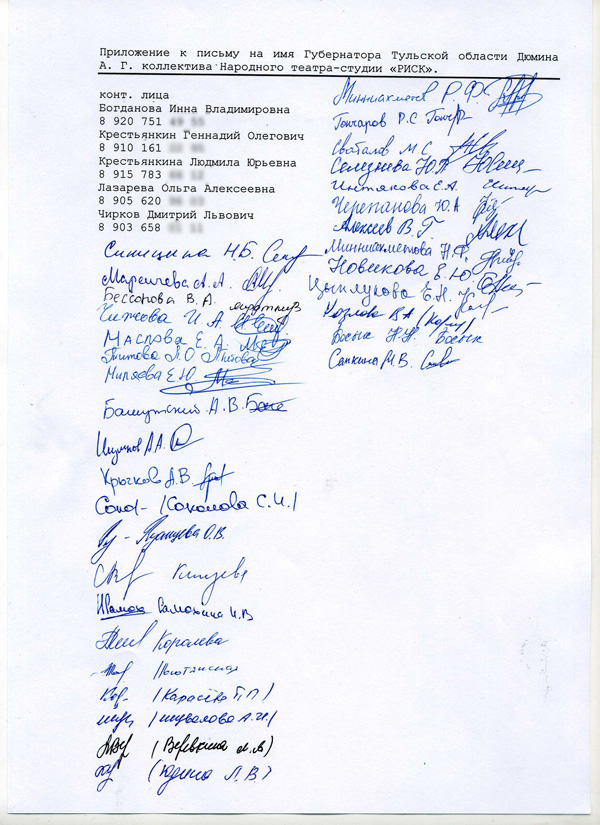 Приложение к письму на имя Губернатора Тульской области Дюмина
А. Г. коллектива Народного театра-студии «РИСК».
конт. лица
Богданова Инна Владимировна
8 920 751
Крестьянкин Геннадий Олегович
8 910 161
Крестьянкина Людмила Юрьевна
8 915 783
Лазарева Ольга Алексеевна
8 905 620
Чирков Дмитрий Львович
8 903 658
Синицина Н.Б.
А.А.
Бессонова В.А.
Чижова И.А.
Маслова Е.А.
Титова Л.О. Титова
Миляева Е.Ю.
А.В.
А.А.
Крючков А.В.
(Соколова С.И.)
О.В.
Самохина И.В
Королева
(Карасёва Т.П)
(Шувалова А.И)
(Веревкина М.А)
(Юдина Л.В)
Миннахметов Р.Ф.
Гончаров Р.С
М.С
Селезнева Ю.А
Е.А.
Черепанова Ю.А
Алексеев В.Г
Миннахметова Н.Ф.
Новикова Е.Ю
Е.Н.
Козлова В.А
Н.Н.
Сапкина М.В.